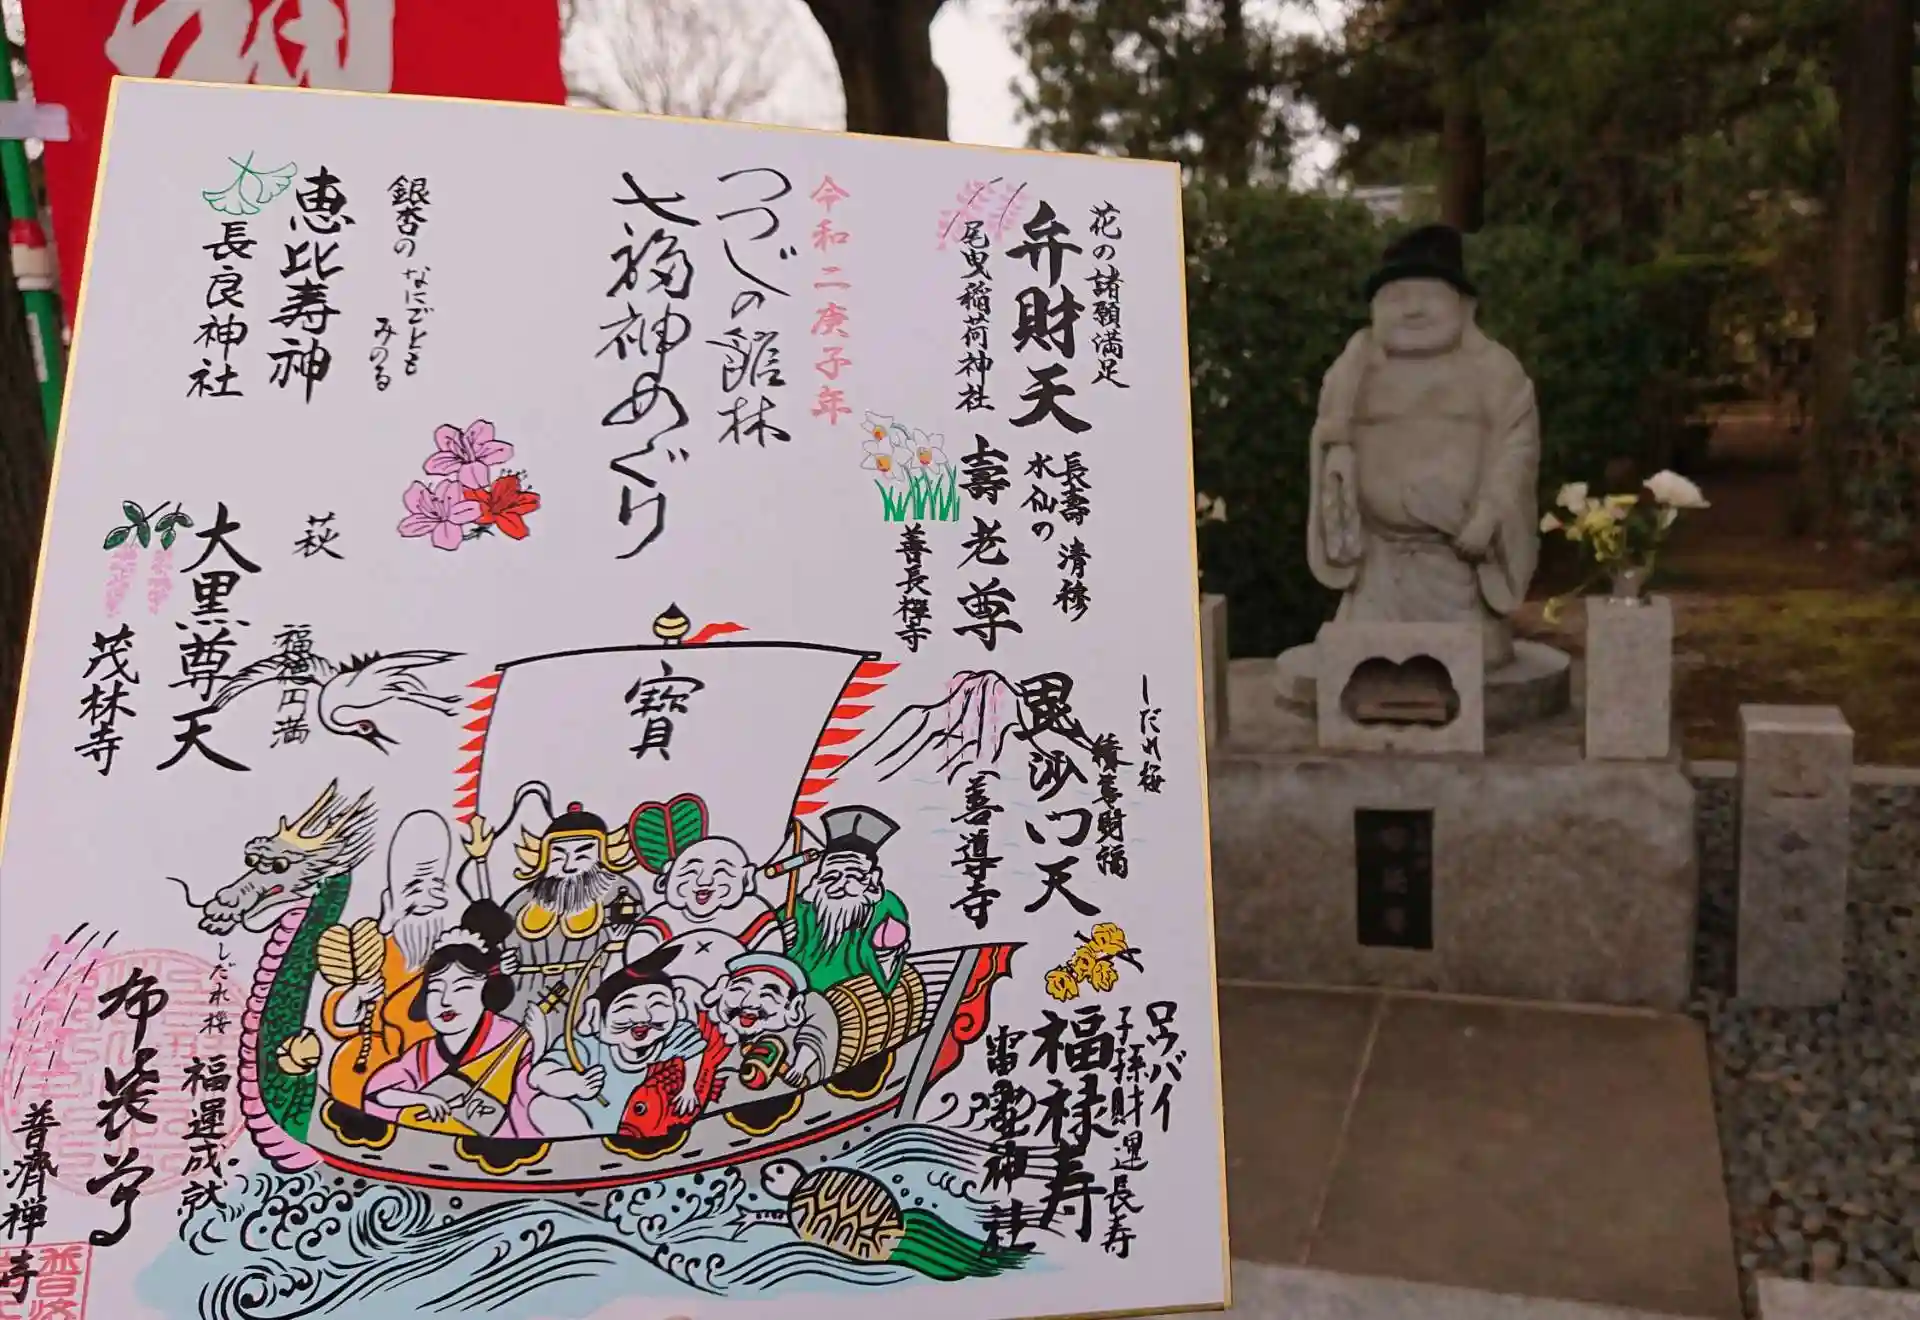 花の諸願満足
弁財天
尾曳稲荷神社
長壽 清穆
水仙の
壽老尊
善長禅寺
しだれ桜
積善財福
毘沙門天
善導寺
ロウバイ
子孫財運長寿
福禄寿
雷電神社
令和二庚子年
つつじの館林
七福神めぐり
寶
銀杏の
なにごとも
みのる
恵比寿神
長良神社
萩
福徳円満
大黒尊天
茂林寺
しだれ桜
福運成就
布袋尊
普濟禅寺